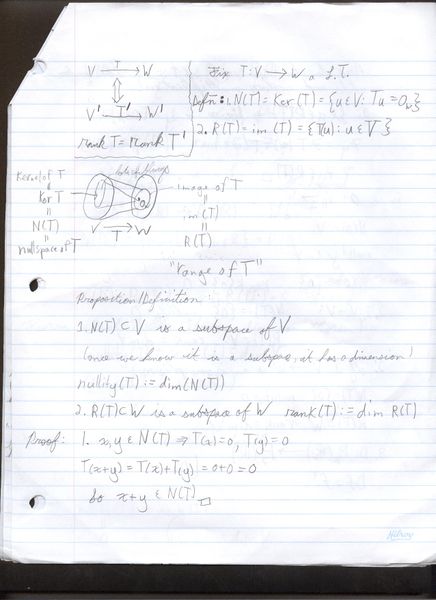 V T→ W
⇕
V' T'→ W'
rank T = rank T'
Fix T: V → W a L.T.
Defn: 1. N(T) = Ker(T) = {u ∈ V: Tu = 0w}
2. R(T) = im(T) = {T(u): u ∈ V}
Kernel of T
=
Ker T
=
N(T)
=
nullspace of T
V T→ W
image of T
=
im(T)
=
R(T)
"range of T"
Proposition/Definition:
1. N(T) ⊂ V is a subspace of V
(once we know it is a subspace, it has a dimension)
nullity(T) := dim(N(T))
2. R(T) ⊂ W is a subspace of W rank(T) := dim R(T)
Proof: 1. x, y ∈ N(T) ⇒ T(x) = 0, T(y) = 0
T(x+y) = T(x) + T(y) = 0 + 0 = 0
So x + y ∈ N(T) □
Hilroy